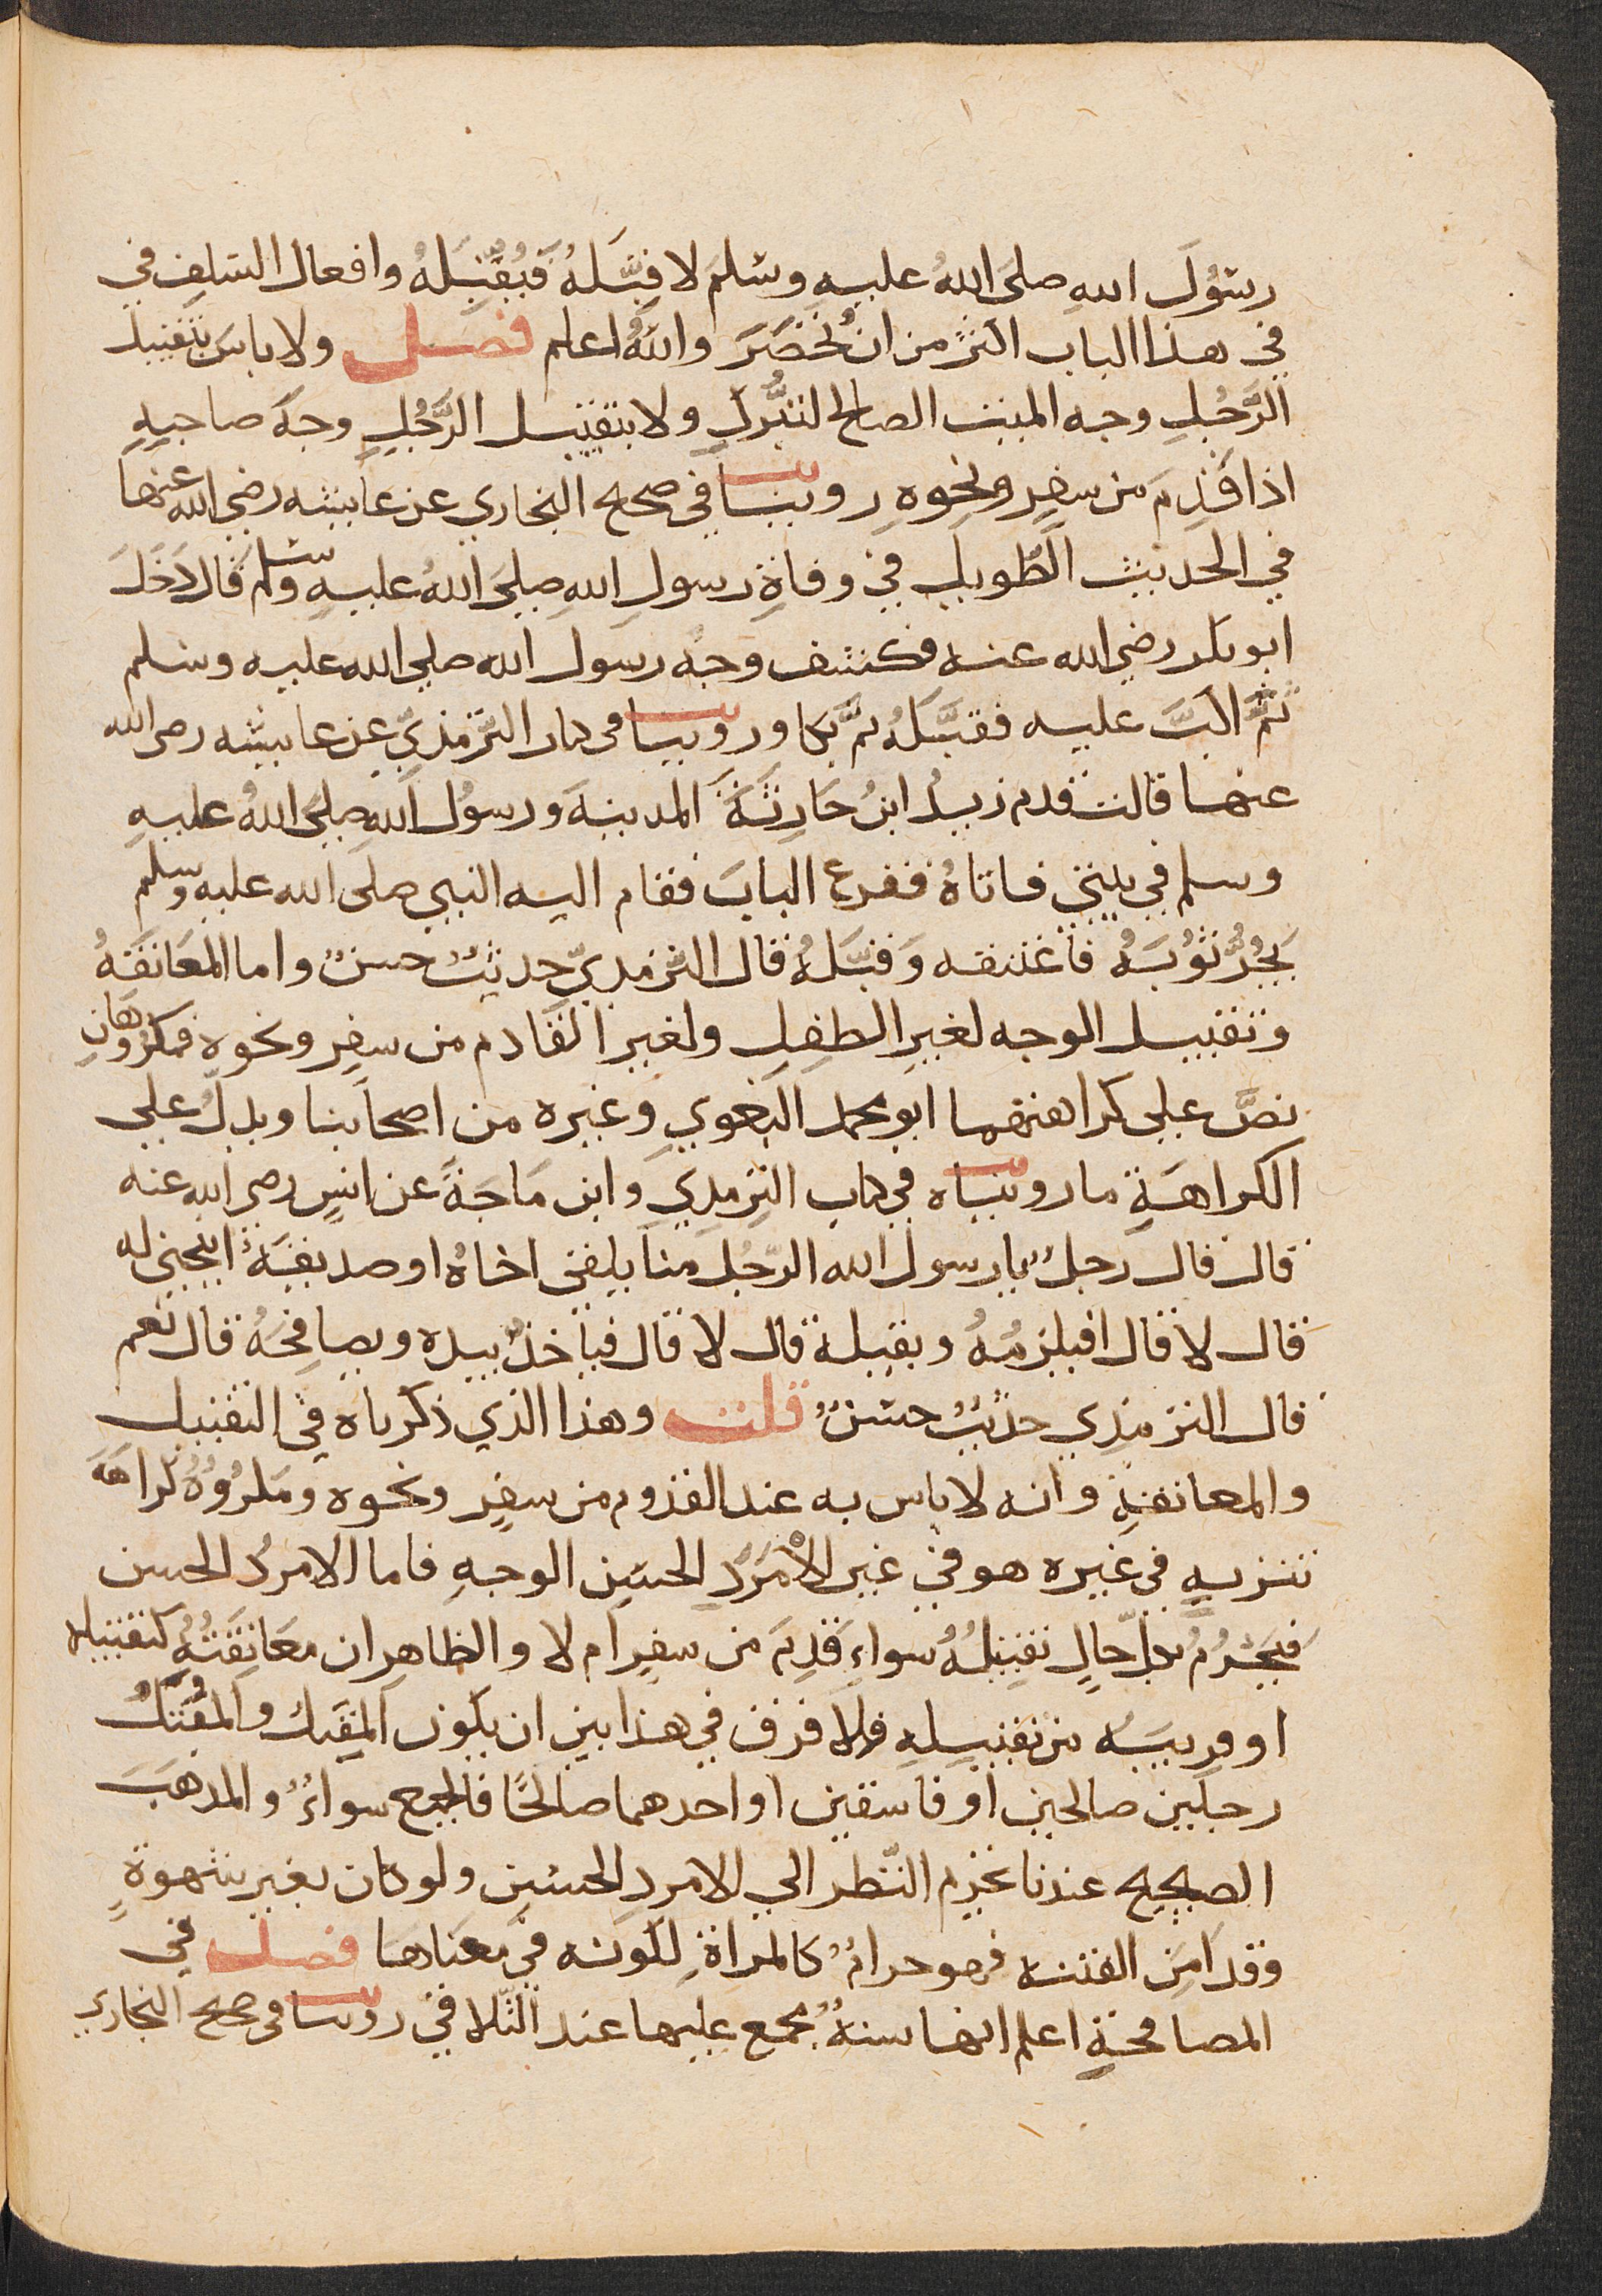 رسُولَ اللهِ صلىَ اللهُ عليهِ وسَلمَ لاقبَّلهُ فيُقبِّلهُ وافعال السَلفِ في
في هذا الباب اكثرُ من ان تُحْصَرَ واللهُ اعلم فصل ولا باسَ بتقبيل
الرَّجُلِ وجه الميت الصالح لتبَرُّكِ ولا بتقبيل الرَّجُلِ وجهَ صاحبِهِ
اذا قدِمَ من سفرٍ ونحوِهِ روينا في صحيح البخاري عن عايشه رضي الله عنها
في الحديث الطويل في وفاةِ رسولِ اللهِ صلىَ اللهُ عليهِ وسلم قال دَخَلَ
ابو بكر رضي الله عنه فكشف وجهَ رسول الله صلي الله عليه وسلم
ثمَّ اكبَّ عليه فقبَّلهُ ثمَّ بكا وروينا في كتاب التِرمذيّ عن عايشه رضي الله
عنها قالت قدم زيدُ ابنُ حَارِثَةَ المدينهَ ورسُول اللهِ صلىَ اللهُ عليهِ
وسلم في بيتي فاتاهُ فقرع البابَ فقام اليه النبي صلى الله عليه وسلم
يَجُرُّ ثوْبَهُ فاعْتنقه وَقبَّلهُ قال الترمذيّ حديثٌ حسنٌ واما المعَانقهُ
وتقبيل الوجه لغيرِ الطفلِ ولغيرِ القادم من سفرٍ ونحوه فمكرُوهَانِ
نصَّ على كراهتهما ابو محمد البغوي وغيره من اصحابنا ويدلُ علي
الكراهَةِ ما رويناه في كتاب الترمذي وابن مَاجَةَ عن انسٍ رضي الله عنه
قال قال رجلٌ يارسول الله الرّجُل منا يلقي اخاهُ او صديقهُ اينحني له
قال لا قال افيلزمُهُ ويقبله قال لا قال فياخذُ بيده ويصافِحُهُ قال نعم
قال الترمذي حديثٌ حسَنٌ قلت وهذا الذي ذكرناه في التقبيل
والمعانقةِ وانه لا باس به عند القدوم من سفرٍ ونحوه ومكرُوهُ كراهَهَ
تنزيهٍ في غيره هو في غير الأمْرَدِ الحسَنِ الوجهِ فاما الامردُ الحسن
فيَحْرُمُ بكلّ حالٍ تقبيلُهُ سواء قَدِمَ من سفرٍ ام لا والظاهر ان معَانقَتُهُ كتقبيله
او قريبَه من تقبيلهِ ولا فرق في هذا بين ان يكون المقبل والمُقبَّلُ
رجلين صالحين او فاسقين او احدهما صالحًا فالجميع سواءٌ والمذهَبَ
الصحيح عندنا تحريم النّظر الي الامردِ الحسَنِ ولو كان بغير شهوةٍ
وقد امِنَ الفتنه فهو حرامٌ كالمراةِ لكونه في معناهَا فصل في
المصافحةِ اعلم انها سنهٌ مجمع عليها عند التّلاقي روينا في صحيح البخاري